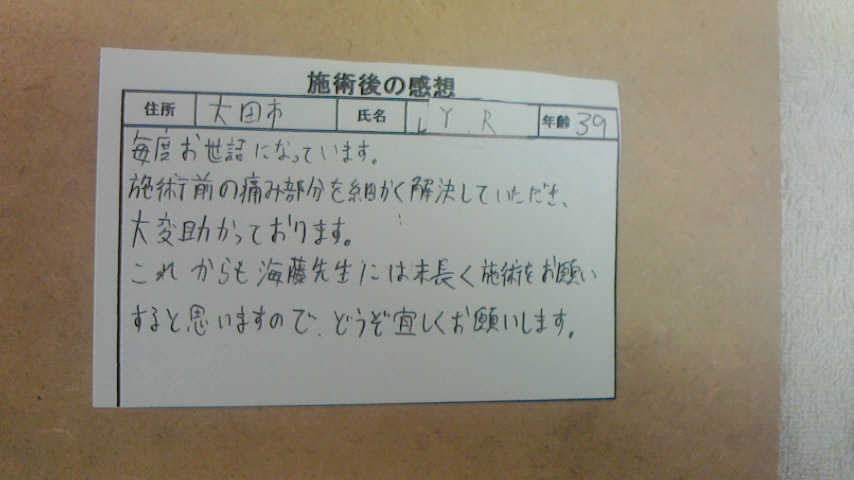 施術後の感想
住所 太田市 氏名 Y.R 年齢 39
毎度お世話になっています。
施術前の痛み部分を細かく解決していただき、
大変助かっております。
これからも海藤先生には末長く施術をお願い
すると思いますので、どうぞ宜しくお願いします。